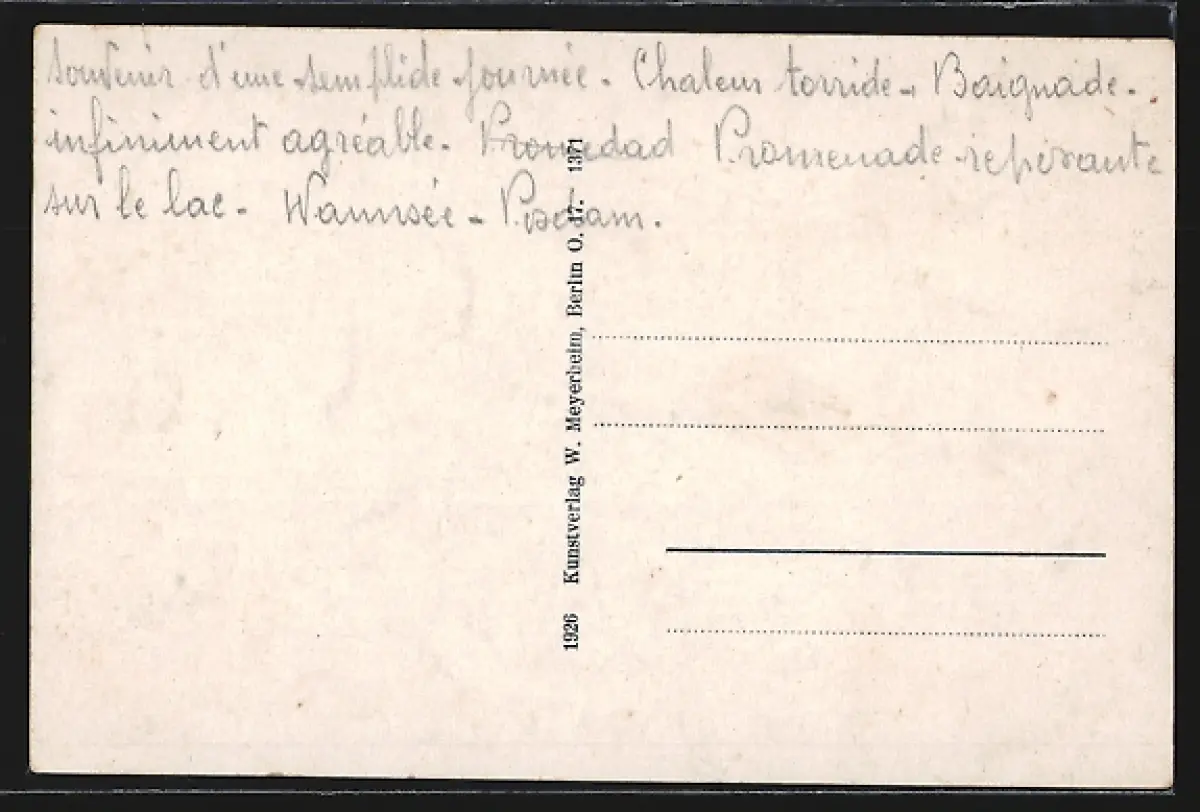 souvenir d'une semplide journée. Chaleur torride. Baignade.
infiniment agréable. Promedad Promenade reposante
sur le lac. Wannsée - Posdam.
1926 Kunstverlag W. Meyerheim, Berlin O. 17. 1371